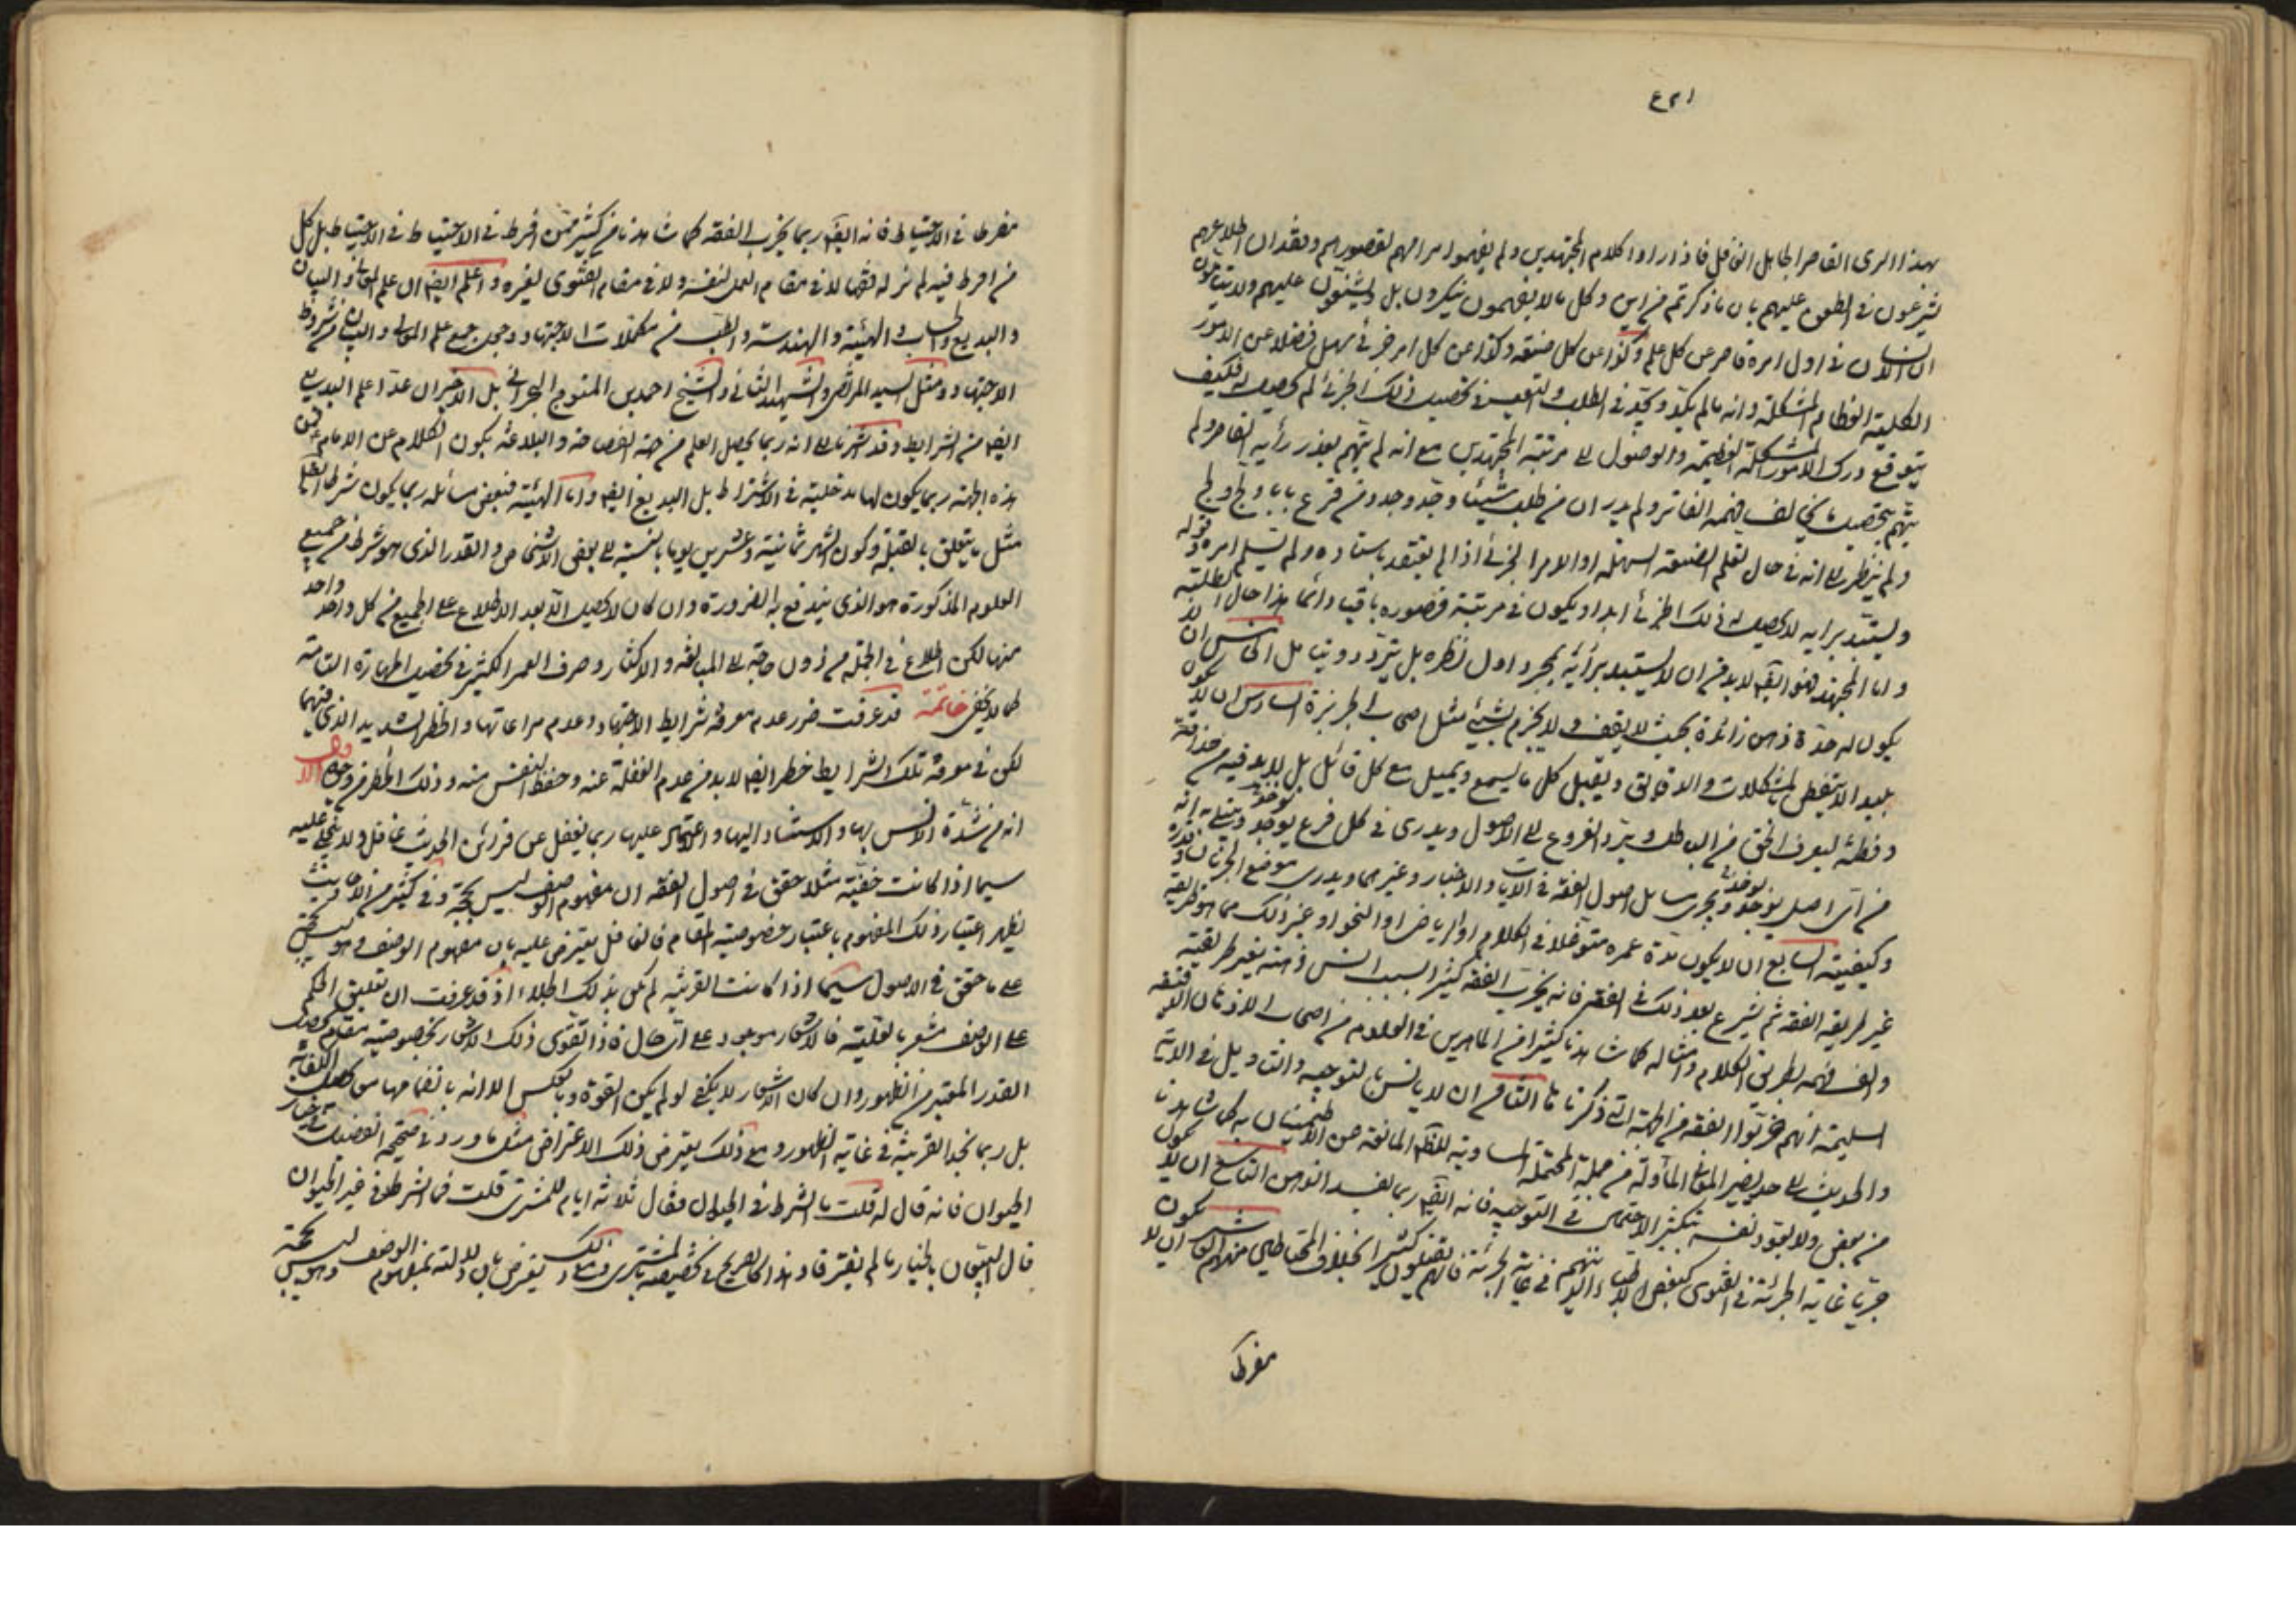 ١٢٤
بهذا الرى القاصر الجاهل الغافل فاذا راوا كلام المجتهدين ولم يفهموا مرامهم لقصورهم وفقدان اطلاعهم
يشرعون فى الطعن عليهم بان ما ذكرتم من اين وكل ما لا يفهمون ينكرون بل ويشنعون عليهم ولا يتاملون
ان الانسان فى اول امره قاصر عن كل علم وكذا عن كل صنعة وكذا عن كل امر جزئى سهل فضلا عن الامور
الكلية العظام المشكلة وانه ما لم يكد ويجد فى الطلب والتعب فى تحصيل ذلك الجزئى لم يحصل له فكيف
يتوقع درك الامور المشكلة العظيمة والوصول الى مرتبة المجتهدين مع انه لم يتهم بعد رأيه القاصر ولم
يتهم بتحصيل ما يخالف فهمه الفاتر ولم يدر ان من طلب شيئا وجد وجد ومن قرع بابا ولج ولج
ولم ينظر الى انه فى حال تعلم الصنعة السهلة او الامر الجزئى اذا لم يعتقد باستاده ولم يسلم امره وقوله
ويستبد برايه لا يحصل له ذلك الجزئى ابدا ويكون فى مرتبة قصوره باقيا دائما هذا حال الطلبة
واما المجتهد فهو ايضا لا بد من ان لا يستبد برأيه بمجرد اول نظره بل يتردد ويتامل الخامس ان لا
يكون له حدة ذهن زائدة بحيث لا يقف ولا يجزم بشيئ مثل اصحاب الجربزة السادس ان لا يكون
بليدا لا يتفطن بالمشكلات والدقائق ويقبل كل ما يسمع ويميل مع كل قائل بل لا بد فيه من حذاقة
وفطنة ليعرف الحق من الباطل ويرد الفروع الى الاصول ويدرى فى كل فرع يوجد ويبتلى به انه
من اى اصل يؤخذ ويجرى مسائل اصول الفقه فى الايات والاخبار وغيرهما ويدرى موضع الجريان وقدره
وكيفيته السابع ان لا يكون مدة عمره متوغلا فى الكلام او الرياضى او النحو او غير ذلك مما هو طريقته
غير طريقة الفقه ثم يشرع بعد ذلك فى الفقه فانه يخرب الفقه كثيرا بسبب انس ذهنه بغير طريقته
والف فهمه بطريق الكلام وامثاله كما شاهدنا كثيرا من الماهرين فى العلوم من اصحاب الاذهان الدقيقة
السليمة انهم خربوا الفقه من الجهة التى ذكرناها الثامن ان لا يانس بالتوجيه والتاويل فى الاية
والحديث الى حد يصير المعانى المأولة من جملة المحتملة المساوية للظاهر المانعة عن الاطمينان به كما شاهدنا
من بعض ولا يعود نفسه بتكثير الاحتمالات فى التوجيه فانه ايضا ربما يفسد الذهن التاسع ان لا يكون
جريا غاية الجرئة فى الفتوى كبعض الاطباء الذين هم فى غاية الجرئة فانهم يقتلون كثيرا بخلاف المحتاطين منهم العاشر ان لا يكون
مفرطا
مفرطا فى الاحتياط فانه ايضا ربما يخرب الفقه كما شاهدنا من كثير ممن افرط فى الاحتياط فى الاحتياط بل كل
من افرط فيه لم نر له فقها لا فى مقام العمل لنفسه ولا فى مقام الفتوى لغيره واعلم ايضا ان علم المعانى والبيان
والبديع والحساب والهيئة والهندسة والطب من مكملات الاجتهاد وجعل جمع علم المعانى والبيان من شروط
الاجتهاد مثل السيد المرتضى والشهيد الثانى والشيخ احمد بن المتوج البحرانى بل الاخيران عدا علم البديع
ايضا من الشرايط وقد اشرنا الى انه ربما يحصل العلم من جهة الفصاحة والبلاغة بكون الكلام عن الامام فمن
هذه الجهة ربما يكون لها مدخلية فى الاشتراط بل البديع ايضا واما الهيئة فبعض مسائله ربما يكون شرطا
مثل ما يتعلق بالقبلة وكون الشهر ثمانية وعشرين يوما بالنسبة الى بعض الاشخاص والقدر الذى هو شرط من جميع
العلوم المذكورة هو الذى يندفع به الضرورة وان كان لا يحصل الا بعد الاطلاع على الجميع من كل واحد واحد
منها لكن اطلاع فى الجملة من دون حاجة الى المبالغة والاكثار وصرف العمر الكثير فى تحصيل المهارة التامة
كما لا يخفى خاتمة قد عرفت ضرر عدم معرفة شرايط الاجتهاد وعدم مراعاتها والخطر الشديد الذى فيهما
لكن فى معرفة تلك الشرايط خطر ايضا لا بد من عدم الغفلة عنه وحفظ النفس منه وذلك الخطر من وجوه الاول
انه من شدة الانس بها والاستناد اليها واعتماده عليها ربما يغفل عن قرائن الحديث غافل ولا ينجلى عليه
سيما اذا كانت خفية مثلا حقق فى اصول الفقه ان مفهوم الوصف ليس بحجة وفى كثير من الاحاديث
يظهر اعتبار ذلك المفهوم باعتبار خصوصية المقام فالغافل يعترض عليه بان مفهوم الوصف وهو ليس بحجة
على ما حقق فى الاصول سيما اذا كانت القرينة لم تكن بذلك الجلاء اذ قد عرفت ان تعليق الحكم
على الوصف مشعر بالعلية فالاشعار موجود على اى حال فاذا تقوى ذلك الاشعار بخصوصية مقام يحصل
القدر المعتبر من الظهور وان كان الاشعار لا يكفى لو لم يكن القوة وبالعكس الا انه بانضمامهما يحصل الكفاية
بل ربما نجد القرينة فى غاية الظهور ومع ذلك يعترض ذلك الاعتراض مثل ما ورد فى صحيحة الفضيل فى خيار
الحيوان فانه قال له قلت ما الشرط فى الحيوان فقال ثلاثة ايام للمشترى قلت فما الشرط فى غير الحيوان
قال البيعان بالخيار ما لم يفترقا وهذا كالصريح فى تخصيصه بالمشترى ومع ذلك يعترض بان دلالته بمفهوم الوصف وهو ليس بحجة